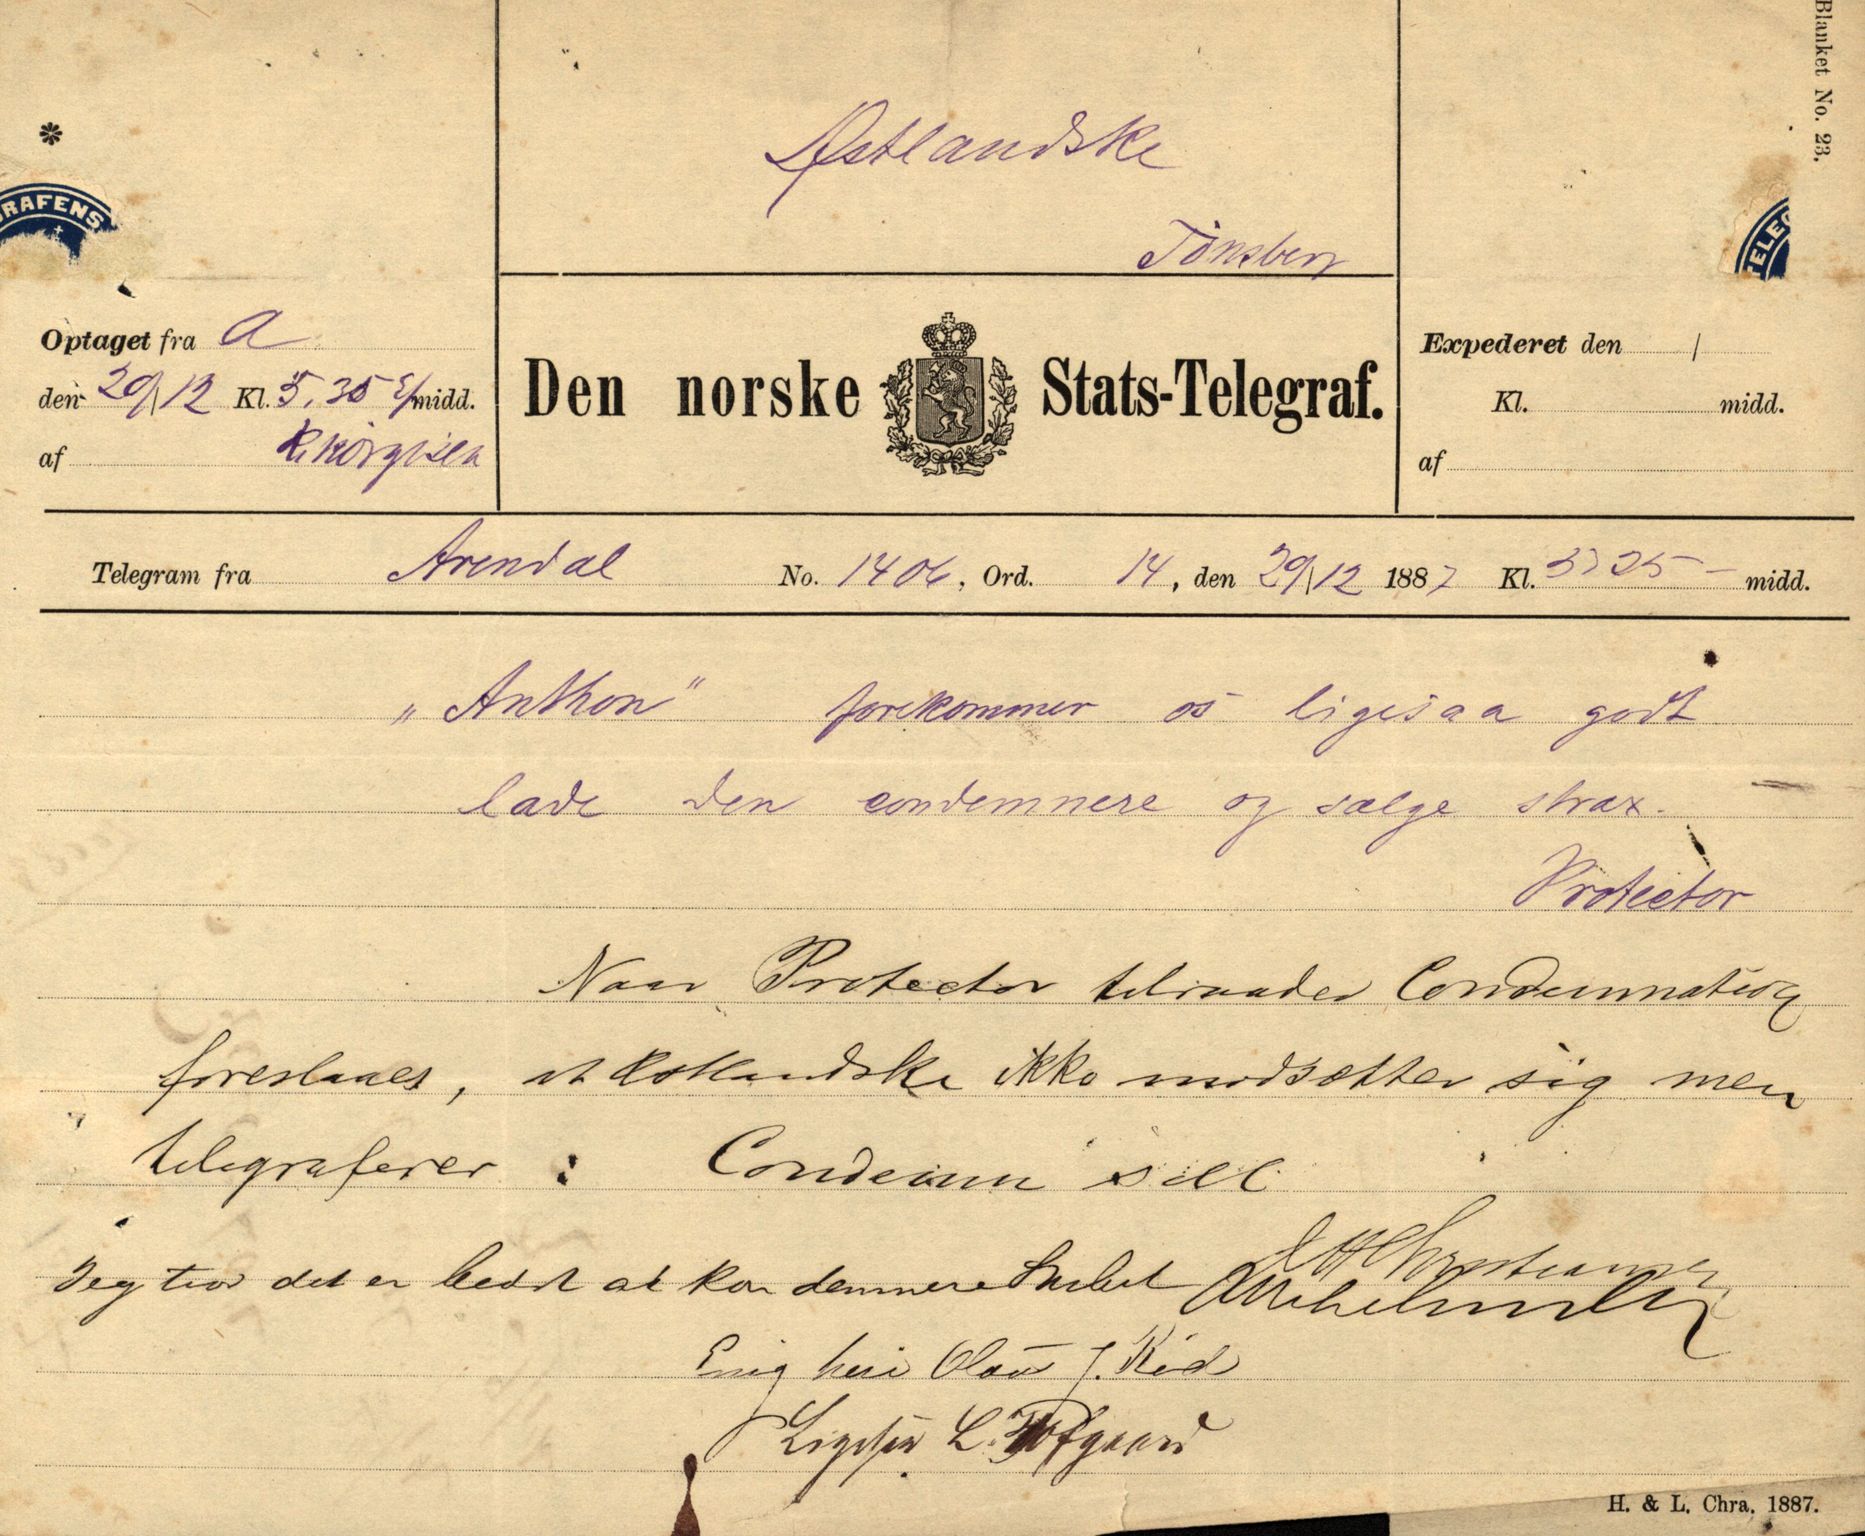 Blanket No. 23.
Østlandske
Tønsberg
*
RAFENS
TELEG
Optaget fra A
den 29/12 Kl. 5,35 E/midd.
af
Den norske Stats-Telegraf.
Expederet den /
Kl. midd.
af
Telegram fra Arendal No. 1406, Ord. 14, den 29/12 1887 Kl. midd.
„Anthon" forekommer os ligesaa godt
lade den condemnere og sælge strax.
Protector
Naar Protector tilraader Condemnation
foreslaaes, at Østlandske ikke modsætter sig men
telegraferer : Condemn sell
Jeg tror det er bedst at kondemnere Skibet
Enig heri Olaus J. Kiød
Ligesaa L.
H. & L. Chra. 1887.